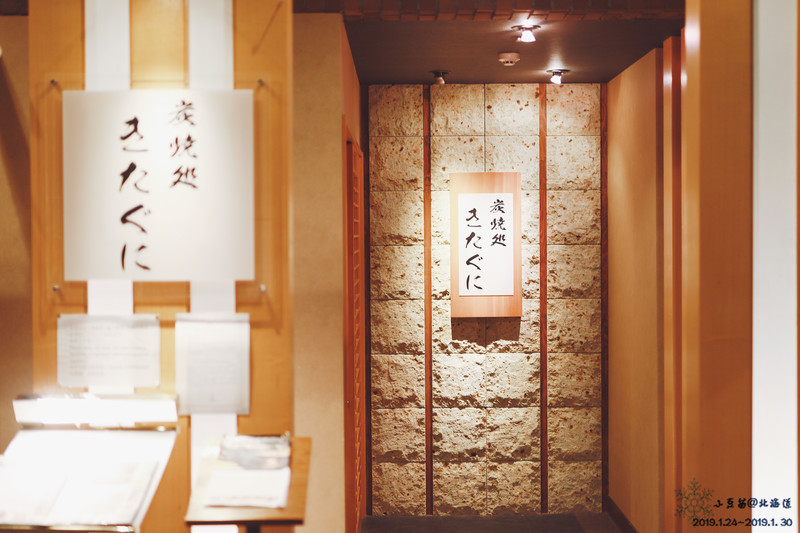 炭焼処
きたぐに
炭焼処
きたぐに
小豆苗@北海道
2019.1.24~2019.1.30